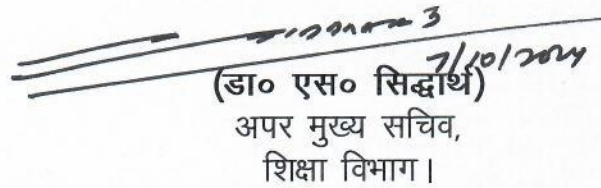 7/10/2024
(डा० एस० सिद्धार्थ)
अपर मुख्य सचिव,
शिक्षा विभाग।